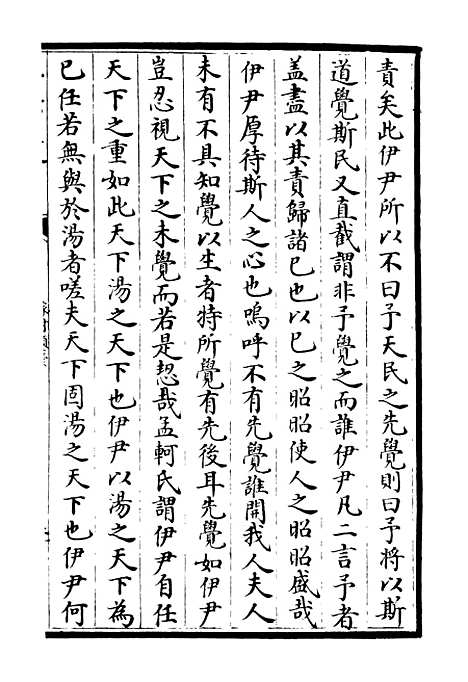 責矣此伊尹所以不曰予天民之先覺則曰予將以斯
道覺斯民又直截謂非予覺之而誰伊尹凡二言予者
盖盡以其責歸諸已也以已之昭昭使人之昭昭盛哉
伊尹厚待斯人之心也嗚呼不有先覺誰開我人夫人
未有不具知覺以生者特所覺有先後耳先覺如伊尹
豈忍視天下之未覺而若是恝哉孟軻氏謂伊尹自任
天下之重如此天下湯之天下也伊尹以湯之天下為
已任若無與於湯者嗟夫天下固湯之天下也伊尹何